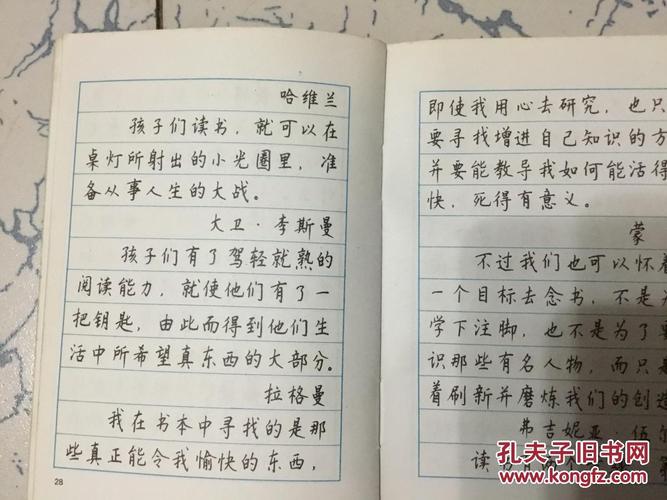 哈维兰
孩子们读书，就可以在
桌灯所射出的小光圈里，准
备从事人生的大战。
大卫·李斯曼
孩子们有了驾轻就熟的
阅读能力，就使他们有了一
把钥匙，由此而得到他们生
活中所希望真东西的大部分。
拉格曼
我在书本中寻找的是那
些真正能令我愉快的东西，
28
即使我用心去研究，也只
要寻找增进自己知识的方
并要能教导我如何能活得
快，死得有意义。
蒙
不过我们也可以怀着
一个目标去念书，不是为
学下注脚，也不是为了要
识那些有名人物，而只是
着刷新并磨炼我们的创造
弗吉妮亚·伍尔
读
孔夫子旧书网
www.kongfz.com